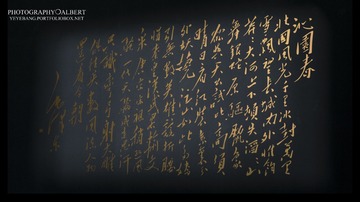 PHOTOGRAPHY©ALBERT
YEYEBANG·PORTFOLIOBOX.NET
沁園春
北國風光千里冰封萬里
雪飄望長城內外惟餘
莽莽大河上下頓失滔滔山
舞銀蛇原驅臘象
欲與天公試比高須
晴日看紅裝素裹分
外妖嬈江山如此多嬌
引無數英雄競折腰
惜秦皇漢武略輸文
采唐宗宋祖稍遜風
騷一代天驕成吉思汗
只識彎弓射大雕
俱往矣數風流人物
還看今朝
毛澤東